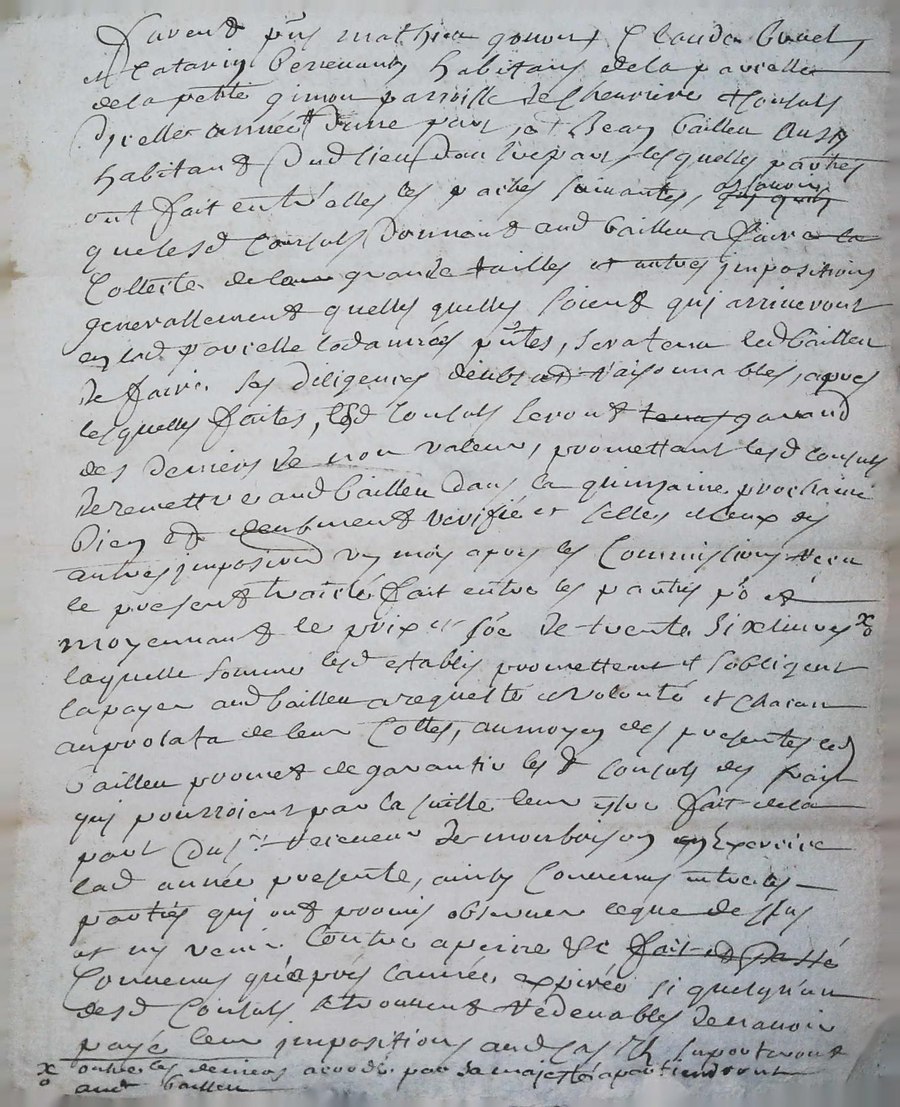 furent p̃ns mathieu gonon, Claude
et Catarin habitans de la parcelle
de la petite gimon parroisse de Chevriere et Consuls
d'icelle année d'une part, et Jean bailleu aussy
habitant dud lieu d'autre part, lesquelles parties
ont fait entr'elles les pactes suivantes, assavoir
que lesd Consuls donnent aud bailleu a faire la
Collecte de la grande tailles et autres impositions
generallement quelles quelles soient qui arriveront
en lad parcelle lad année p̃nte, sera tenu led bailleu
de faire ses diligences deubes et raisonnables, apres
lesquelles faites, lesd Consuls seront garand
des deniers de non valeur, promettant lesd Consuls
de remettre aud bailleu dans la quinzaine prochaine
bien et deubment verifié et celles des
autres impositions un mois apres les Commissions
le present traicté fait entre les parties et
moyennant le prix et de trente six livres
laquelle somme lesd establis promettent et s'obligent
la payer aud bailleu a requeste et volonté et chacun
au prolata de leur Cottes, au moyen des presentes led
bailleu promet de garantir lesd Consuls des frais
qui pourroient par la suitte leur estre fait de la
part du sr. receveur de montbrison en Exercice
lad année presente, ainsy Convenus entre les
parties qui ont promis observer ce que dessus
et ny venir Contre a peine &c fait et Passé
Convenus qu'apres l'année expirée si quelqu'un
desd Consuls se trouvent redevables de n'avoir
payé leur impositions aud
outre les deniers acordés par sa majesté apartiendront
aud bailleu